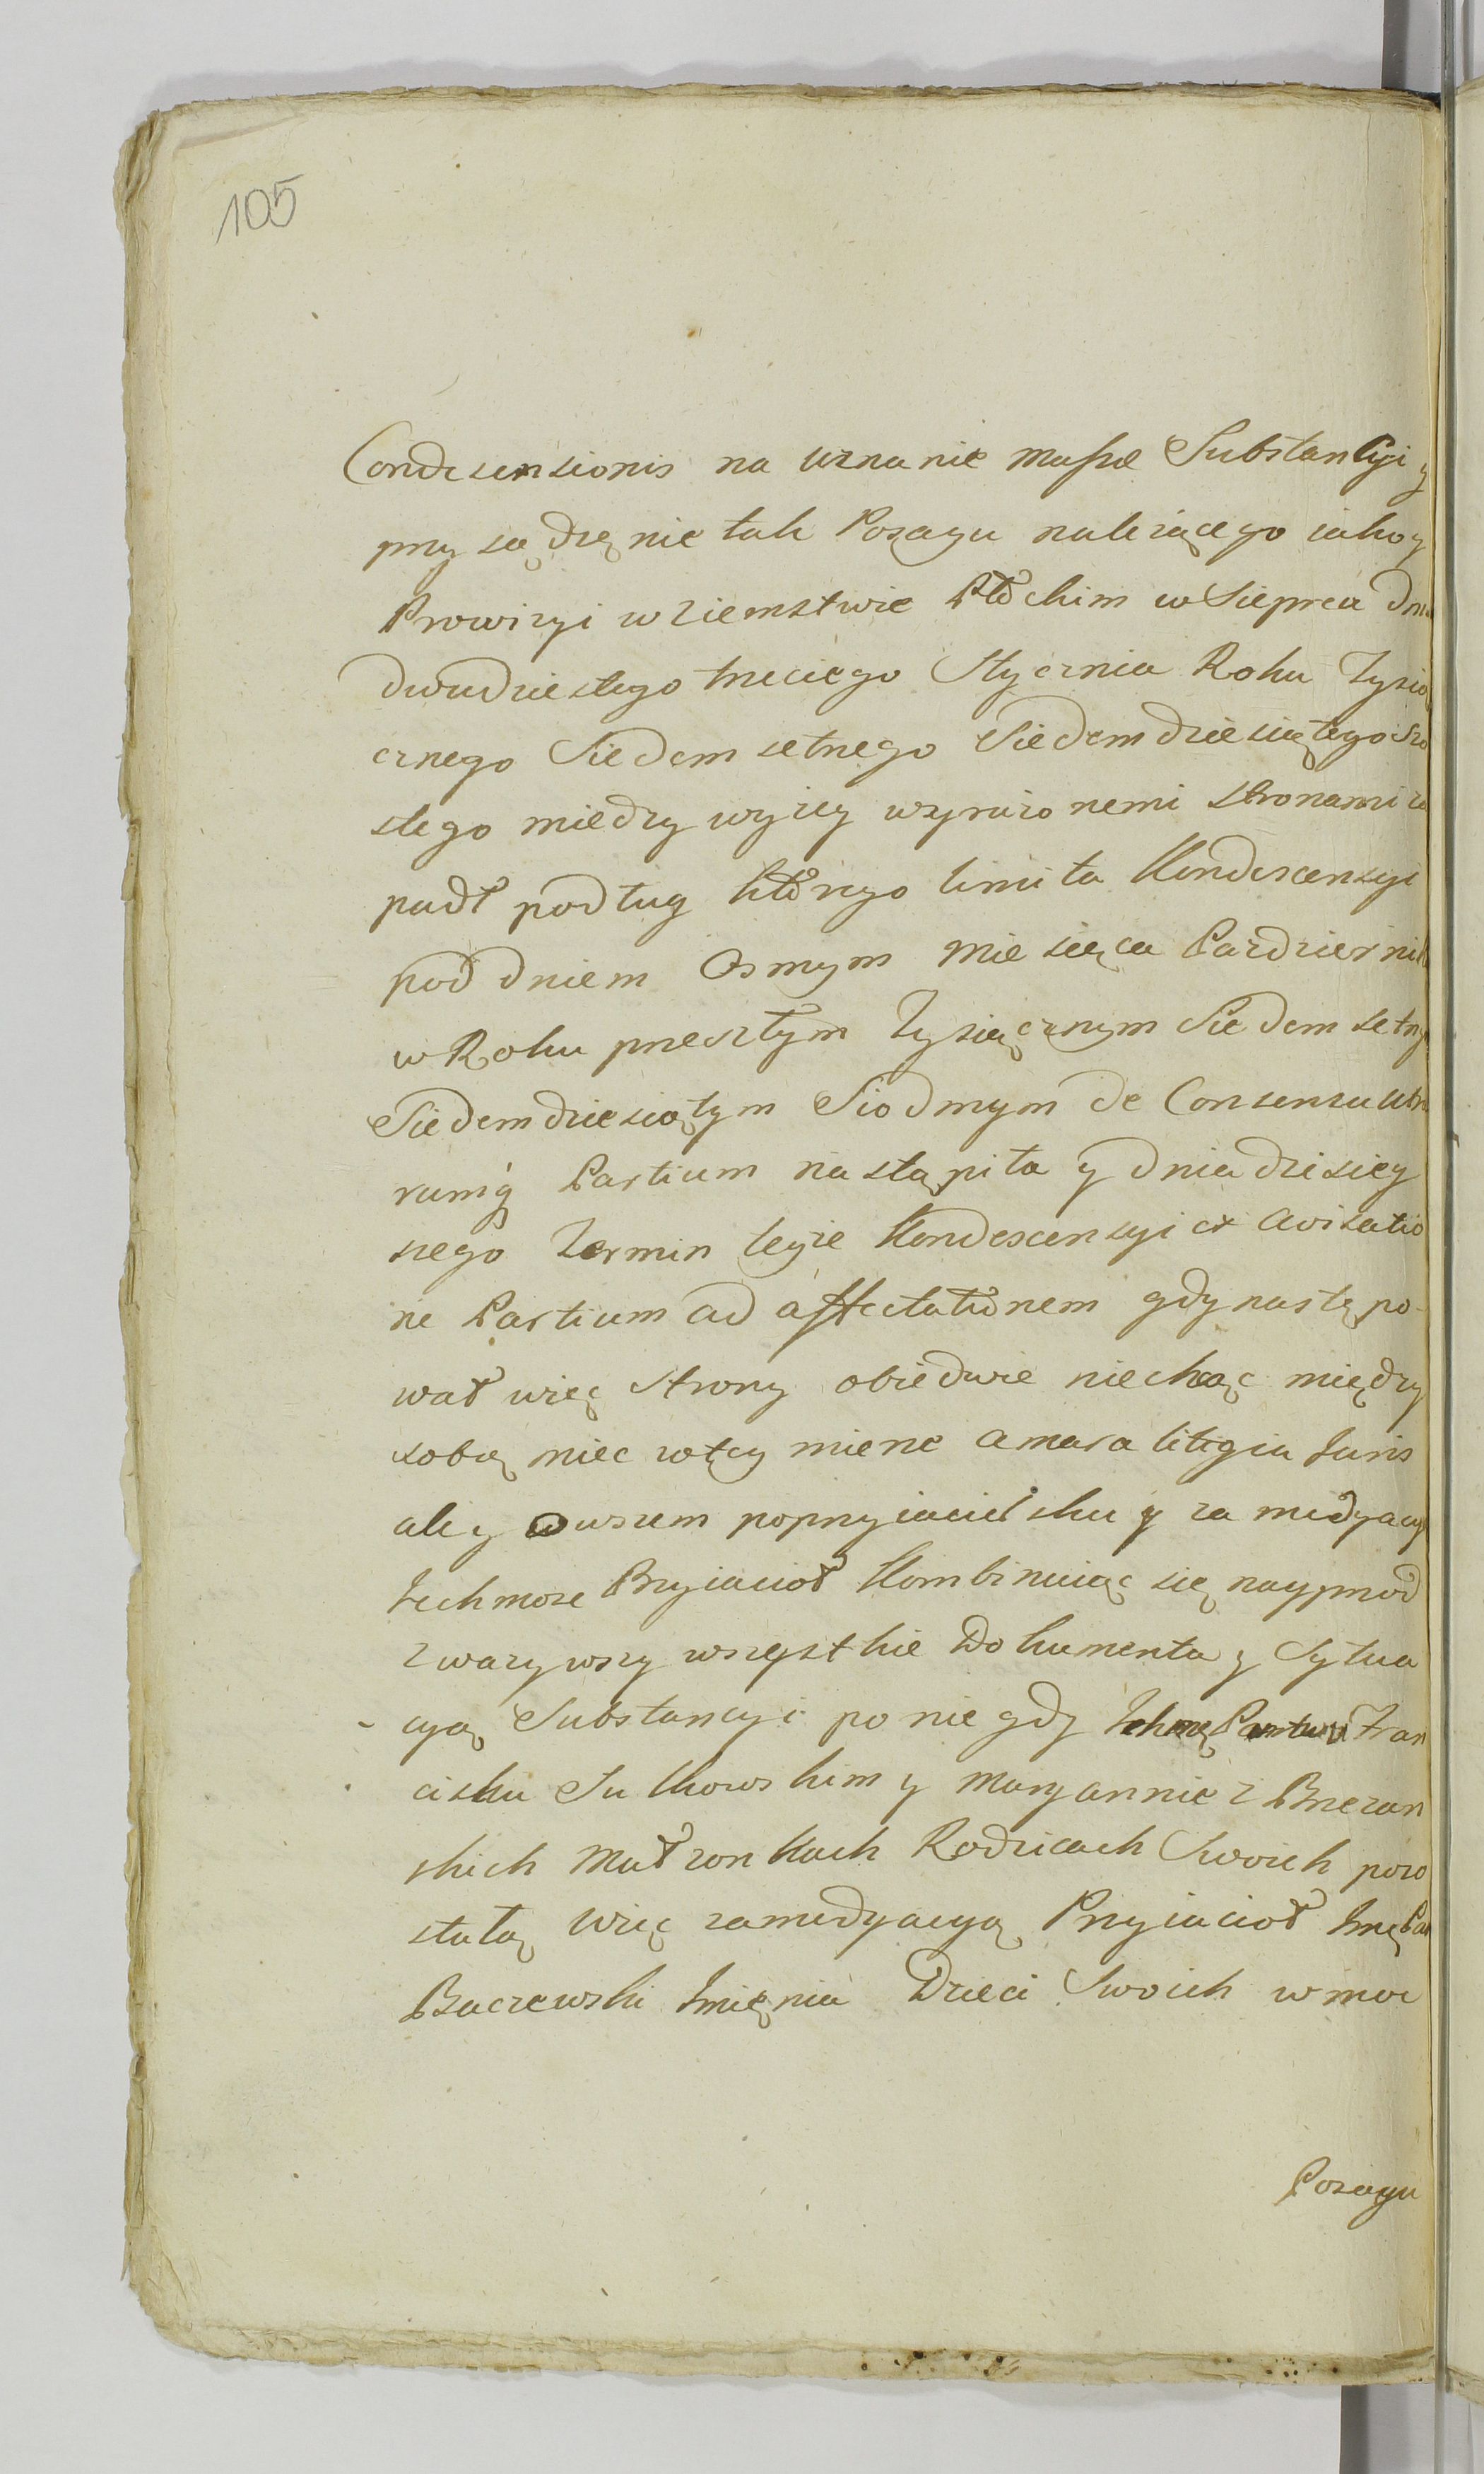 105
Condescensionis na uznanie massę Substancyi y
przysądzęnie tak Posagu należącego iako y
Prowizyi w ziemstwie Płockim w Sieprcu dnia
dwudziestego trzeciego Stycznia Roku Tysią
cznego Siedemsetnego Siedemdziesiątego Szo
stego miedzy wyzey wyrażonemi stronami za
padł podług którego limita Kondescensyi
pod dniem Osmym Miesięca Pazdziernik
w Roku przeszłym Tysiącznym Siedemsetny
Siedemdziesiątym Siodmym de Consensu utra
rumq Partium nastąpiła y dnia dzisiey
szego Termin teyże Kondescensyi ex avisatio
ne Partium ad affectationem gdy nastę po-
wał więc strony obiedwie niechcąc między
sobą miec w tey mierze amara litigia Juris
ale y owszem poprzyiacielsku y za medyacyą
Ichmośc Przyiacioł Kombinuiąc się nayprzod
zwazywszy wszystkie Dokumenta y Sytua
cyą Substancyi po niegdy Fran
ciszku Sulkowskim y Maryannie z Brzezan
skich Małzonkach Rodzicach Swoich pozo
stałą więc za medyacyą Przyiacioł Jmę Pan
Baczewski Imięnia Dzieci Swoich w moc
Posagu